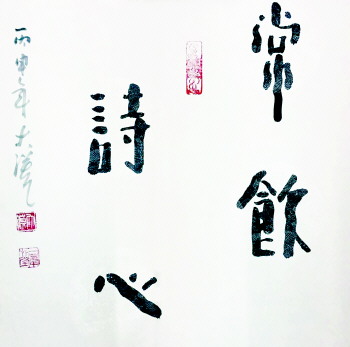 常飲
詩心
丙申年大漢